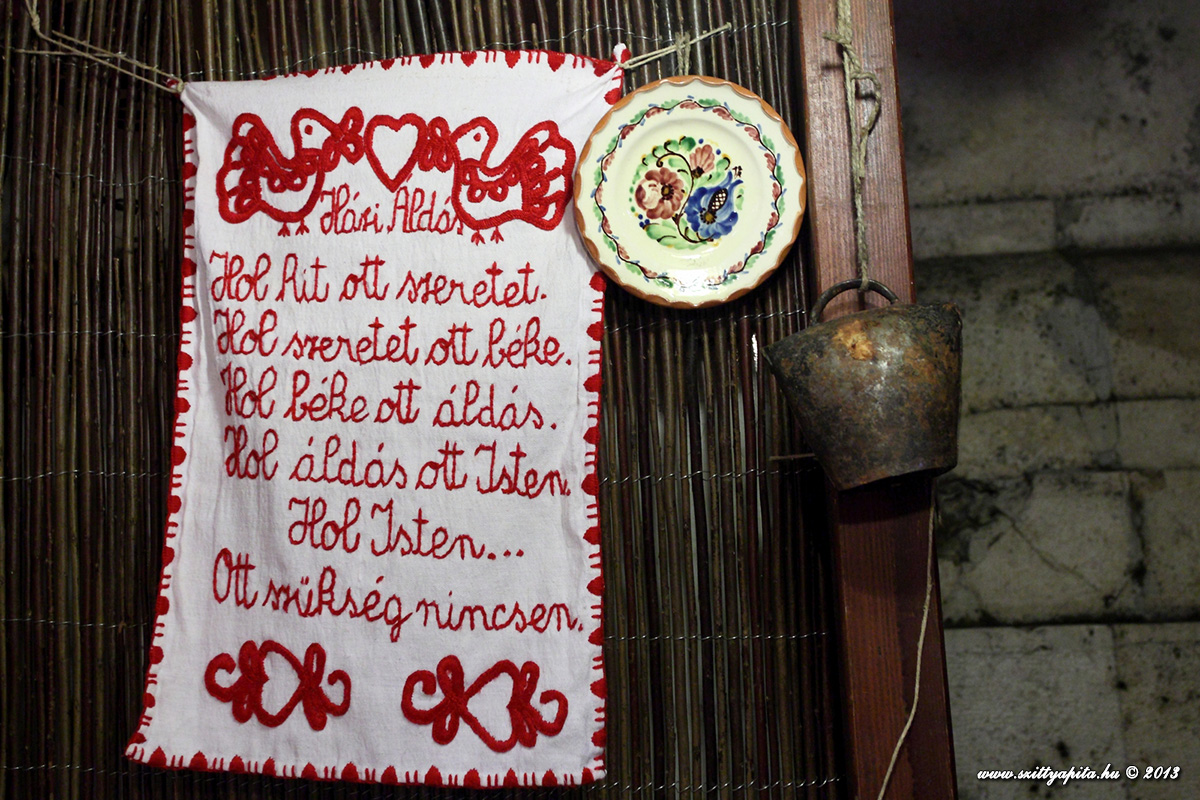 Házi Áldás
Hol hit ott szeretet.
Hol szeretet ott béke.
Hol béke ott áldás.
Hol áldás ott Isten.
Hol Isten...
Ott szükség nincsen.
www.szittyapita.hu © 2013